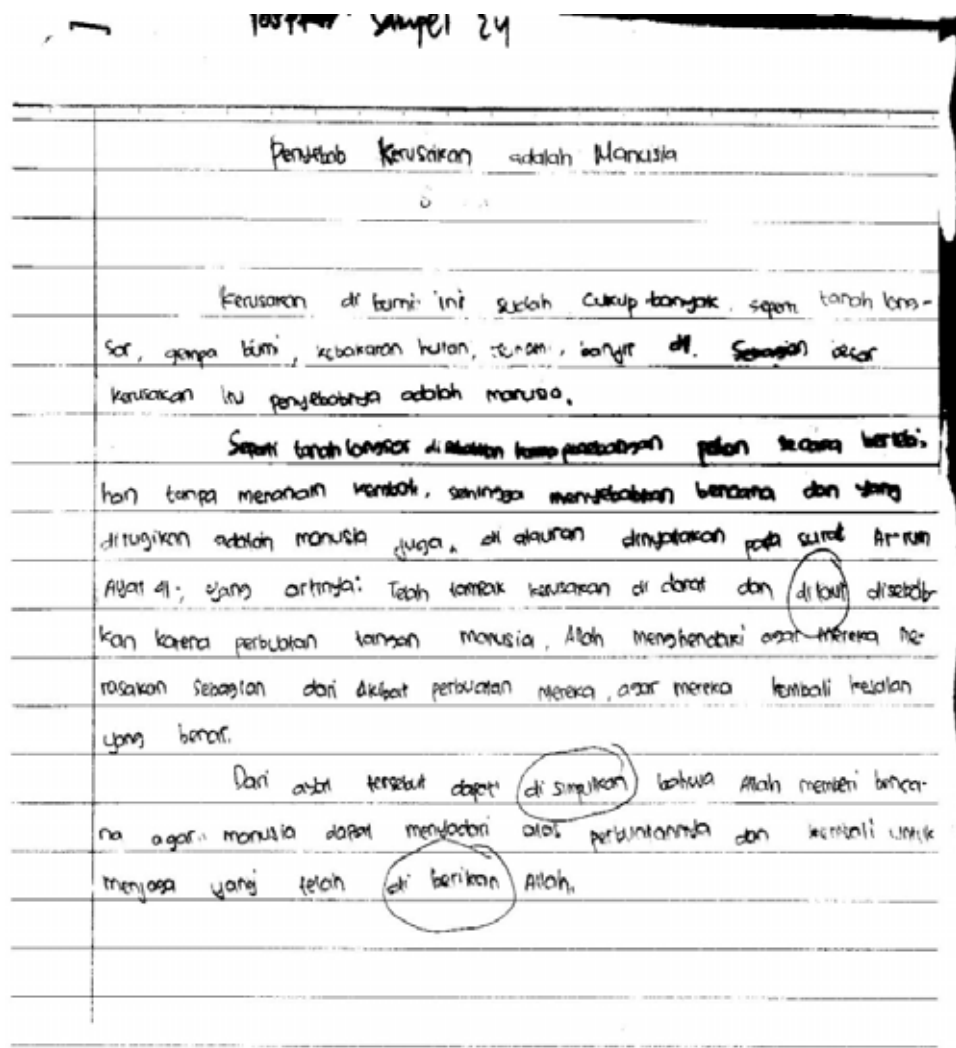 Sampel 24
Penyebab Kerusakan adalah Manusia
Kerusakan di bumi ini sudah cukup banyak. seperti tanah long-
sor, gempa bumi, kebakaran hutan, banjir dll. Sebagian besar
kerusakan itu penyebabnya adalah manusia.
Seperti tanah longsor di karena penebangan secara berlebi-
han tanpa menanam kembali, sehingga menyebabkan bencana dan yang
dirugikan adalah manusia juga, di alquran dinyatakan pada surat Ar-rum
Ayat 41; yang artinya: Telah tampak kerusakan di darat dan di laut disebab-
kan karena perbuatan tangan manusia, Allah menghendaki agar mereka me-
rasakan sebagian dari Akibat perbuatan mereka, agar mereka kembali kejalan
yang benar.
Dari ayat tersebut dapat di simpulkan bahwa Allah memberi benca-
na agar manusia dapat menyadari atas dan kembali untuk
menjaga yang telah di berikan Allah.